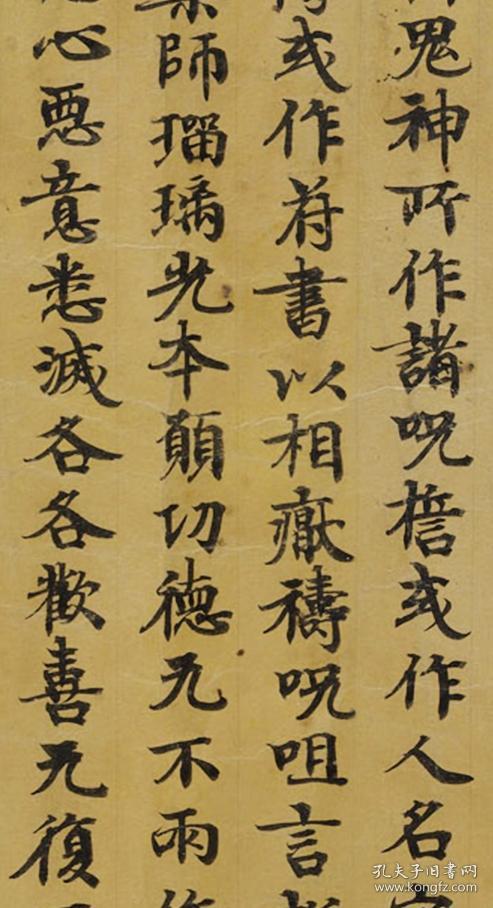 鬼神所作諸呪㨾或作人名
或作苻書以相猒禱呪咀言
師瑠璃光本願功德无不兩
心惡意悉滅各各歡喜无復
孔夫子旧书网
www.kongfz.com